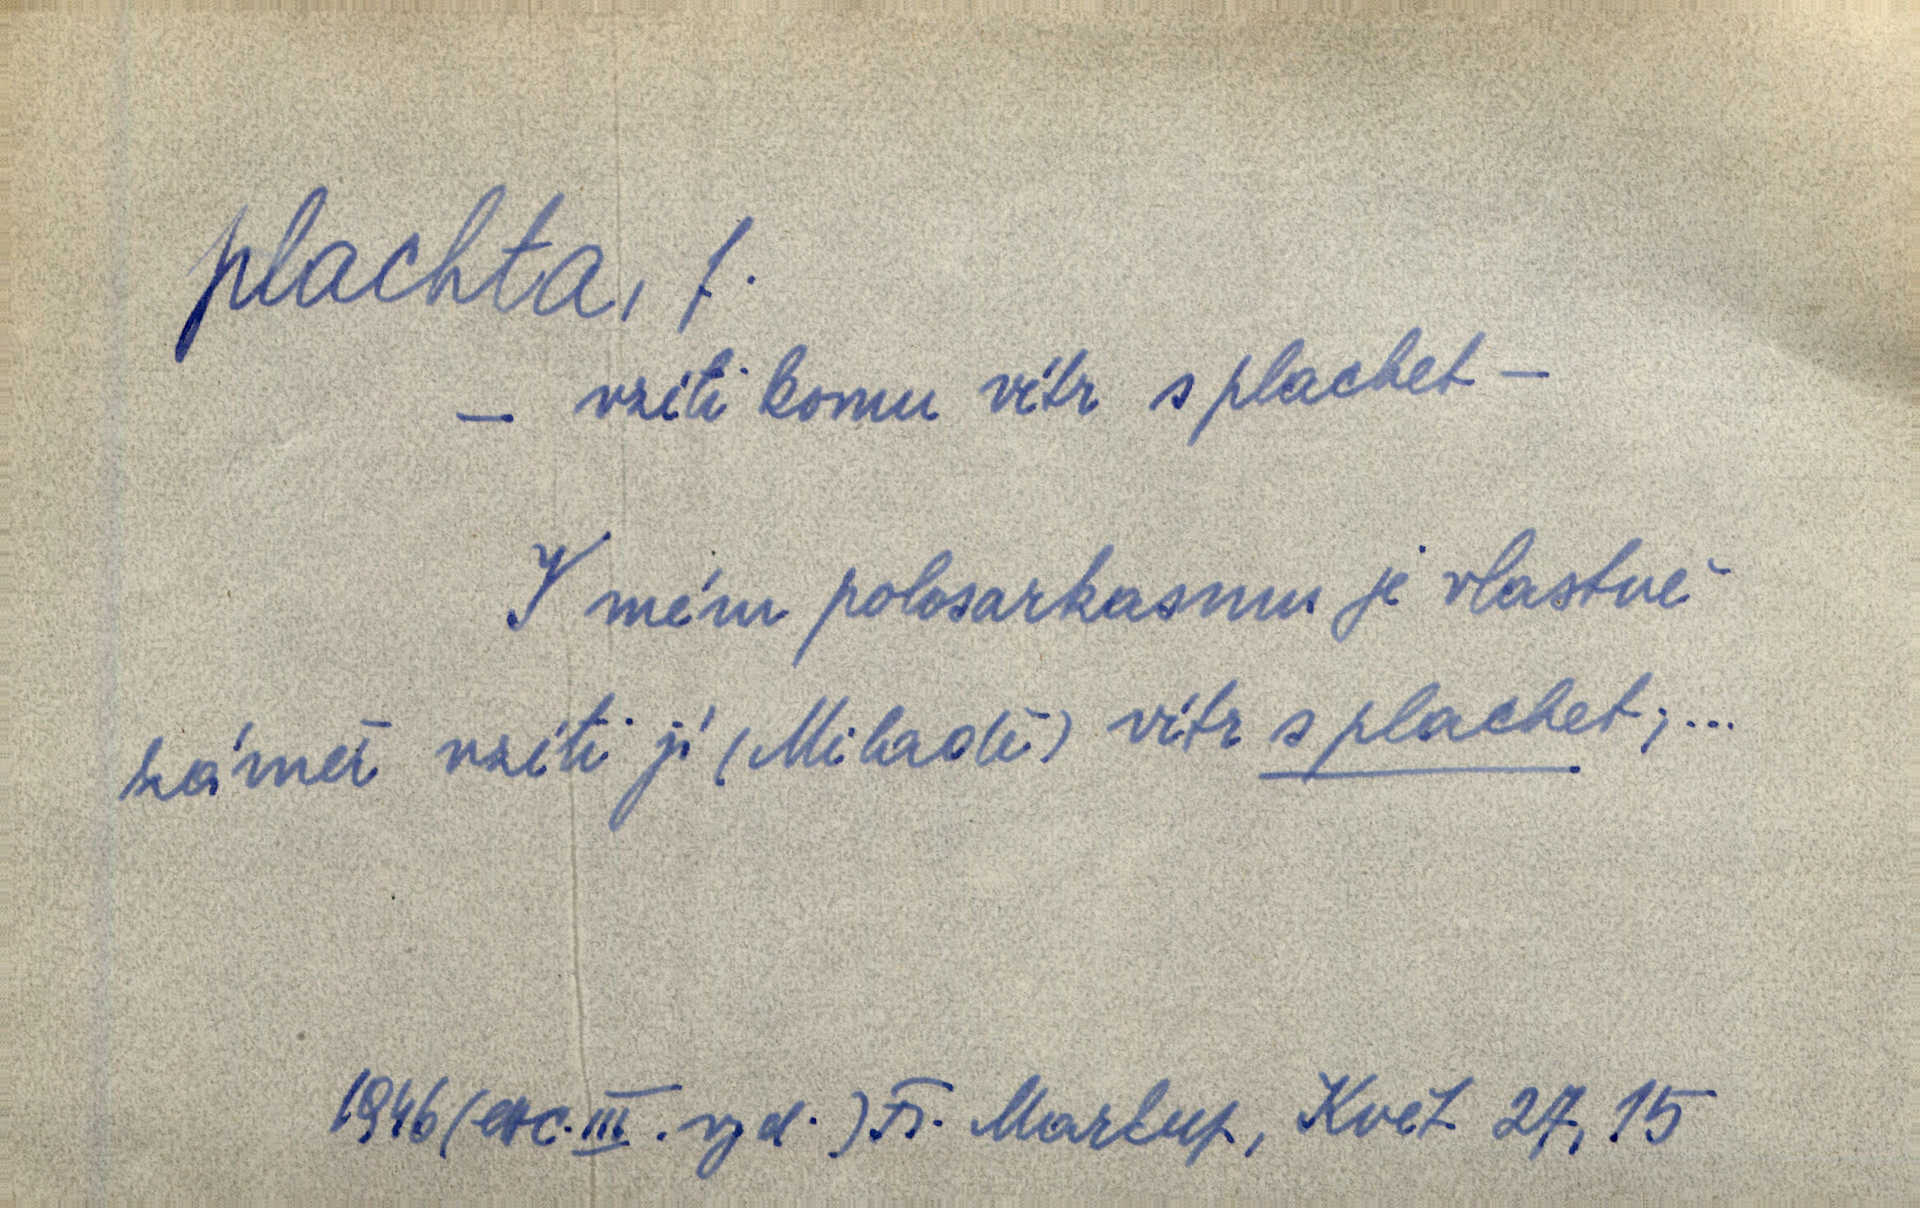 plachta, f.
— vzíti komu vítr s plachet —
V mém polosarkasmu je vlastně
záměr vzíti jí (Miladě) vítr s plachet; ...
1946 (exc. III. vyd.) Fr. Markup, Květ 27, 15